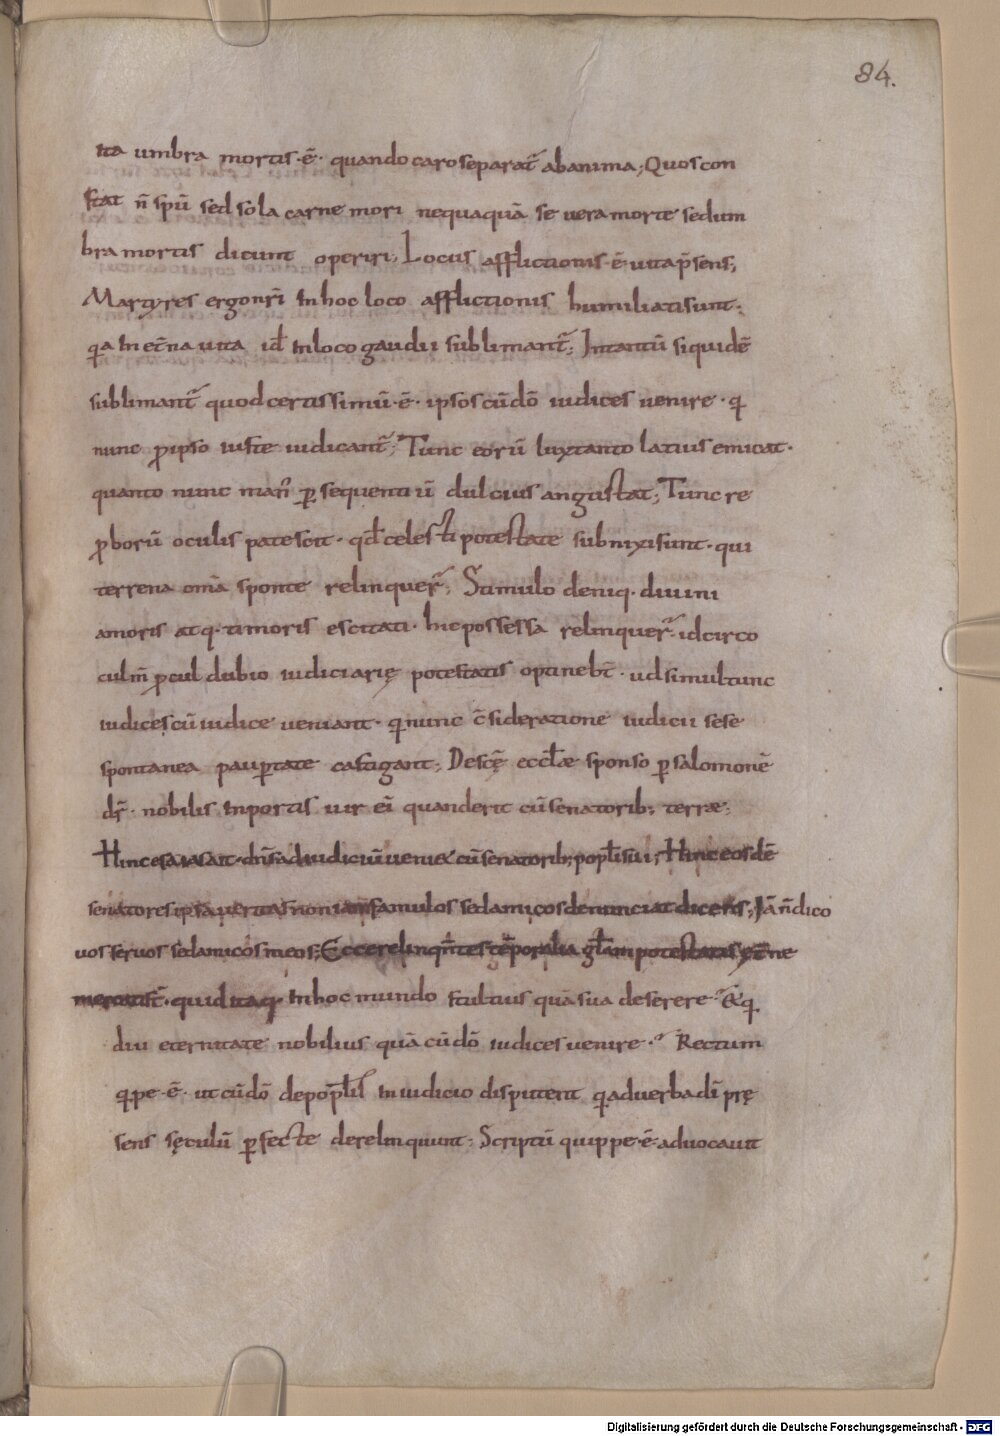 84.
ita umbra mortis · ē · quando caro separat̄ ab anima; Quos con
stat n̄ spū sed sola carne mori nequaquā se vera morte sed um
bra mortis dicunt operiri; Locus afflictionis · ē · uita p̄sens;
Martyres ergo nr̄i In hoc loco afflictionis humiliati sunt ·
q̄a In et̄na uita id̄ In loco gaudii sublimant̄; Intantū siquidē
sublimant̄ quod certissimū · ē · ipsos cū dō iudices uenire · q̄
nunc p̄ ipso iuste iudicant̄; Tunc eorū lux tanto latius emicat ·
quanto nunc man̄ ꝑsequentiū dulcius angustat; Tunc re
ꝓborū oculis patescit · qd̄ celesti potestate subnixi sunt · qui
terrena om̄ia sponte relinquer̄; Stimulo deniq · diuini
amoris atq · timoris escitati · hic possessa relinquer̄ · idcirco
culm̄ ꝓcul dubio iudiciarię potestatis optineb̄t · ud simul tunc
iudices cū iudice ueniant · q̄ nunc c̄sideratione iudicii sese
spontanea pauꝑtate castigant; De scę̄ eccl̄æ sponso ꝑ salomonē
dr̄ · nobilis In portis uir ei̅ quanderit cū senatorib; terræ;
Hinc esaias ait · dn̄s ad iudiciū ueniet cū senatorib; popl̄i sui; Hinc eosdē
senatores ipsa ueritas non iam famulos sed amicos denunciat dicens; Jā n̄ dico
uos seruos sed amicos meos; Ecce relinqn̄tes tēporalia gl̄am potestatis et̄ne
mercatist̄ · quid itaq In hoc mundo stultius quā sua deserere · & q̄
diu eternitate nobilius quā cū dō iudices uenire · Rectum
q̄pe · ē · ut cū dō de popl̄is In iudicio disputent q̄ ad uerba dī prę
sens sęculū ꝑfecte derelinquunt; Scriptū quippe · ē · aduocauit
Digitalisierung gefördert durch die Deutsche Forschungsgemeinschaft - DFG